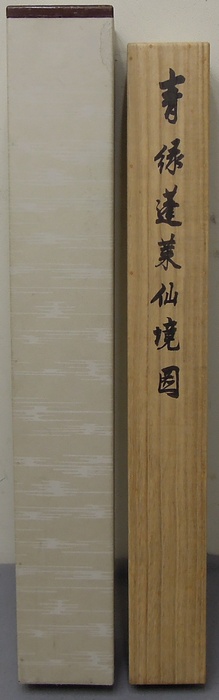 青緑蓬莱仙境図